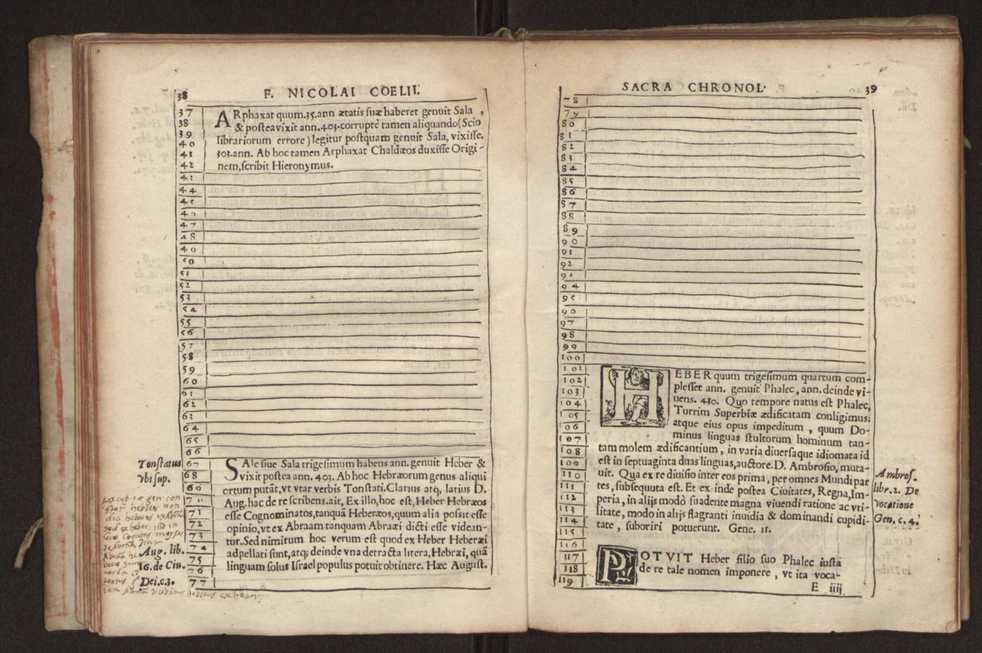 38 F. NICOLAI COELII.
37 ARphaxat quum.35.ann ætatis suæ haberet genuit Sala,
38 & postea vixit ann. 403. corruptè tamen aliquando (Scio
39 librariorum errore) legitur postquam genuit Sala, vixisse.
40 303. ann. Ab hoc tamen Arphaxat Chaldæos duxisse Origi-
41 nem, scribit Hieronymus.
42
43
44
45
46
47
48
49
50
51
52
53
54
55
56
57
58
59
60
61
62
63
64
65
66
Tonstatus
vbi sup.
67 SAle siue Sala trigesimum habens ann. genuit Heber &
68 vixit postea ann. 403. Ab hoc Hebræorum genus aliqui
69 ortum putāt, vt vtar verbis Tonstati. Clarius atq́, latius D.
70 Aug. hac de re scribens, ait, Ex illo, hoc est, Heber Hebræos
71 esse Cognominatos, tanquā Heberæos, quum alia possit esse
72 opinio, vt ex Abraam tanquam Abraæi dicti esse videan-
73 tur. Sed nimirum hoc verum est quod ex Heber Heberæi
74 adpellati sint, atq́; deinde vna detracta litera, Hebræi, quā
75 linguam solus Israel populus potuit obtinere. Hæc August.
76
77
Aug. lib.
16. de Ciu.
Dei.c.3.
SACRA CHRONOL. 39
78
79
80
81
82
83
84
85
86
87
88
89
90
91
92
93
94
95
96
97
98
99
100
101 HEBER quum trigesimum quartum com-
102 plesset ann. genuit Phalec, ann. deinde vi-
103 uens. 430. Quo tempore natus est Phalec,
104 Turrim Superbiæ ædificatam conligimus,
105 atque eius opus impeditum, quum Do-
106 minus linguas stultorum hominum tan-
107 tam molem ædificantium, in varia diuersaque idiomata id
108 est in septuaginta duas linguas, auctore. D. Ambrosio, muta-
109 uit. Qua ex re diuisio inter eos prima, per omnes Mundi par
110 tes, subsequuta est. Et ex inde postea Ciuitates, Regna, Im-
111 peria, in alijs modò suadente magna viuendi ratione ac vti-
112 litate, modo in alijs flagranti inuidia & dominandi cupidi-
113 tate, suboriri potuerunt. Gene. 11.
114
115
116
Ambros.
libr.2. De
vocatione
Gen. c.4.
117 POTVIT Heber filio suo Phalec iustā
118 de re tale nomen imponere, vt ita voca-
119
E iiij